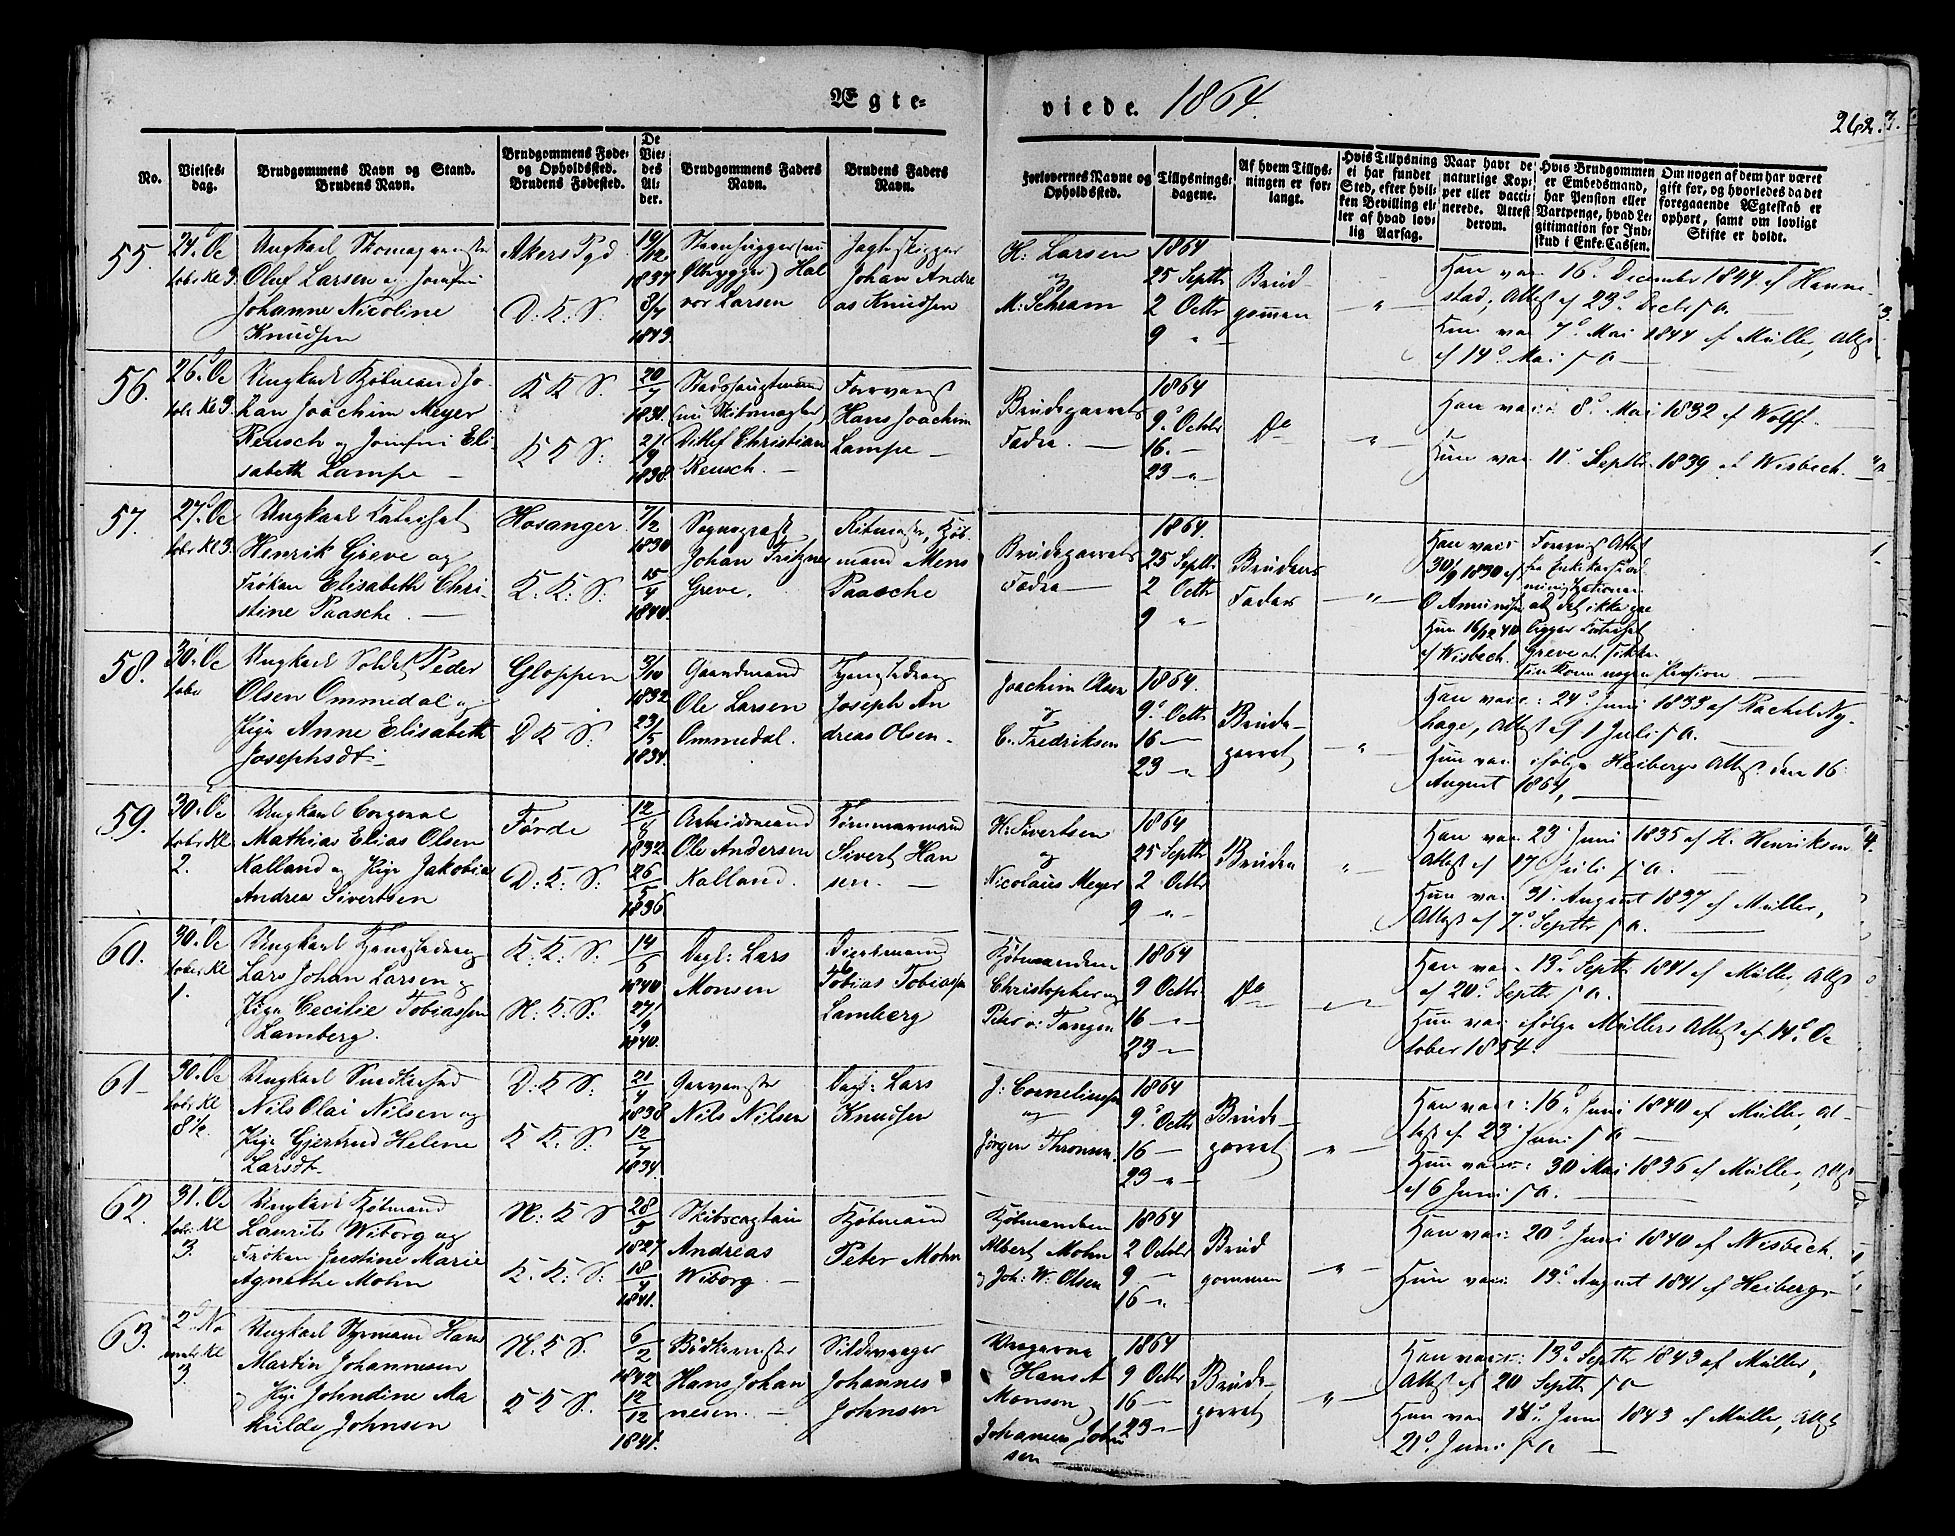 Ægte-
viede. 1864.
262.
No.
Vielses-
dag.
Brudgommens Navn og Stand.
Brudens Navn.
Brudgommens Føde-
og Opholdssted.
Brudens Fødested.
De
Vie-
des
Al-
der.
Brudgommens Faders
Navn.
Brudens Faders
Navn.
Forlovernes Navne og
Opholdssted.
Tillysnings-
dagene.
Af hvem Tillys-
ningen er for-
langt.
Hvis Tillysning
ei har fundet
Sted, efter hvil-
ken Bevilling el-
ler af hvad lov-
lig Aarsag.
Naar havt de
naturlige Kop-
per eller vacci-
nerede. Attest
derom.
Hvis Brudgommen
er Embedsmand,
har Pension eller
Vartpenge, hvad Le-
gitimation for Ind-
skud i Enke-Cassen.
Om nogen af dem har været
gift før, og hvorledes da det
foregaaende Ægteskab er
ophørt, samt om lovligt
Skifte er holdt.
55.
24. Oc
tobr. Kl 3.
Ungkarl Skomagersvend
Oluf Larsen og Jomfru
Johanne Nicoline
Knudsen
Akers Pgd
D: K: S:
1837
3/7
1843.
Steenhugger (nu
Ølbrygger) Hal
vor Larsen
Johan Andre
as Knudsen
H: Larsen
og
M: Schram
1864
25 Septbr
2 Octbr
9 "
Brud
gommen
"
Han vacc. 16. December 1844 af Henne-
stad, Attest af 23. Decbr s. a.
Hun vac. 7. Mai 1844 af Müller, Attest
af 14. Mai s. a.
56.
26. Oc
tobr. Kl 3.
Ungkarl Kjøbmand Jo-
han Joachim Meyer
Reusch og Jomfru Eli-
sabeth Lampe
K K S.
K K S:
20/7
1831.
21/9
1838.
Stadshauptmand
(nu Skibsmægler)
Ditlef Christian
Reusch.
Garver
Hans Joachim
Lampe
Brudeparrets
Fædre.
1864
9. Octobr
16. -
23 "
Do
"
Han vacc: 8. Mai 1832 af Wolff.
Hun vac. 11. Septbr. 1839 af Wisbech.
57.
27. Oc
tobr. Kl 3.
Ungkarl Catechet
Henrik Greve og
Frøken Elisabeth Chri-
stine Paasche.
Hosanger
K. K: S:
7/2
1830
15/4
1840.
Sogneprest
Johan Fritzner
Greve.
Ritmester, Kjøb
mand Mens
Paasche
Brudeparrets
Fædre
1864.
25 Septbr
2 Octbr
9 "
Brudens
Fader
"
Han vacc
30/9 1830 af
O Amundsen
Hun 16/12 40
af Wisbech.
58.
30. Oc
tobr
Ungkarl Soldat Peder
Olsen Ommedal og
Pige Anne Elisabeth
Josephsdt.
Gloppen
D K S:
3/10
1832
23/5
1834.
Gaardmand
Ole Larsen
Ommedal.
Joseph An
dreas Olsen.
Joachim Olsen
og
C. Fredriksen
1864.
9. Octbr
16 -
23 "
Brude-
parret
"
Han vacc: 24. Juni 1833 af Rachel Ny-
hage, Attest af 1 Juli s. a.
Hun vac. ifølge Heibergs Attest den 16
August 1864,
59.
30. Oc
tobr. Kl
2.
Ungkarl Corporal
Mathias Elias Olsen
Kalland og Pige Jakobia
Andrea Sivertsen
Førde
D: K: S:
12/8
1832.
26/5
1836.
Arbeidsmand
Ole Andersen
Kalland.
Tømmermand
Sivert Han
sen.
H: Sivertsen
og
Nicolaus Meyer
1864
25 Septbr
2 Octbr
9 "
Bruden
"
Han vac. 23 Juni 1835 af H. Henriksen
Attest af 17 Juli s. a.
Hun vac. 31. August 1837 af Müller,
Attest af 7. Septbr s. a.
60.
30. Oc
tober Kl
1.
Lars Johan Larsen og
Pige Cecilie Tobiassen
Lamberg.
K: K: S:
N: K: S:
14/6
1840
27/9
1840.
Dagl: Lars
Monsen
Tobias Tobiassen
Lamberg
Kjøbmændene
Christopher og
Peter v: Tangen
1864
9 Octbr
16 -
23 -
Do
"
Han vac. 13. Septbr 1841 af Müller, Attest
af 20. Septbr s. a.
Hun vac: ifølge Müllers Attest af 14. Oc
tober 1854.
61
30. Oc
tobr. Kl
8½.
Ungkarl Snedkersvend
Nils Olai Nilsen og
Pige Gjertrud Helene
Larsdt.
D: K S:
K K: S:
21/4
1838
12/7
1834.
Nils Nilsen
Dagl: Lars
Knudsen
J: Corneliussen
og
Jørgen Thronsen.
1864
9. Octbr
16 -
23 "
Brude-
parret
"
Han vacc: 16. Juni 1840 af Müller, At-
test af 23. Juni s. a.
Hun vacc: 30 Mai 1836 af Müller, Attest
af 6 Juni s. a.
62.
31. Oc
tobr. Kl
3.
Ungkarl Kjøbmand
Laurits Wiborg og
Frøken Justine Marie
Agnethe Mohn
N: K S
K. K: S:
28/5
1827
18/4
1841.
Skibscaptain
Andreas
Wiborg
Kjøbmand
Peter Mohn
Kjøbmændene
Albert Mohn
og Joh: W: Olsen
1864
2 Octobr
9 -
16 -
Brud
gommen
"
Han vac: 20. Juni 1840 af Wisbech.
Hun vac: 13. August 1841 af Heiberg
63.
2. No
vembr. Kl
3.
Ungkarl Styrmand Hans
Martin Johannesen
og Pige Johndine Ma
thilde Johnsen
N. K S.
K K S.
6/2
1842
12/12
1841.
Bødkermester
Hans Johan
nesen.
Sildevrager
Johannes
Johnsen
Vragerne
Hans A
Monsen
Johannes John
sen
1864
9 Octbr
16 -
23 -
Brude-
parret
"
Han vacc: 13. Septbr 1843 af Müller,
Attest af 20 Septbr s. a
Hun vac 14. Juni 1843 af Müller, Attest
21. Juni s. a